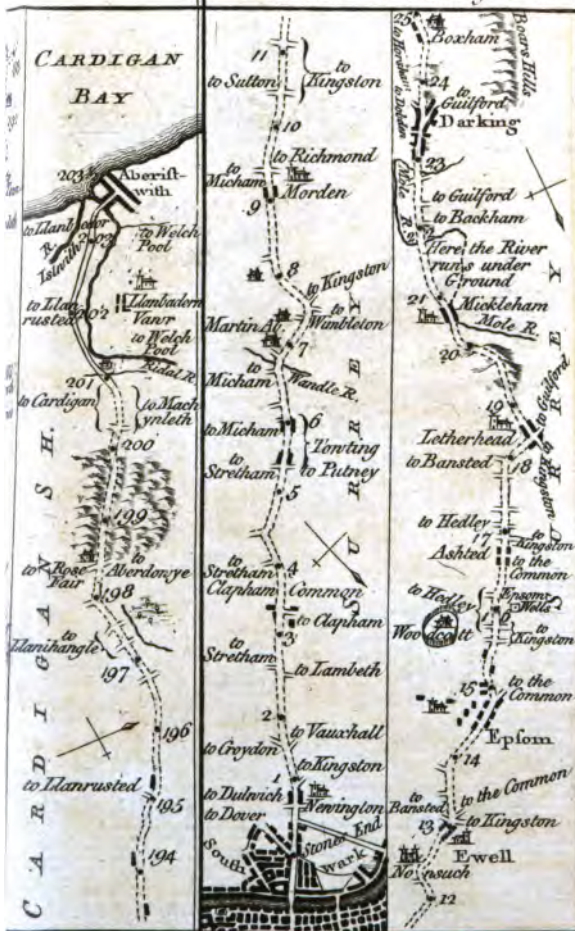 CARDIGAN
BAY
203
Aberist-
with
to Llanbedor
R.
Istwith
202
to Welch
Pool
Llanbadern
Vawr
to Llan-
rusted
202
to Welch
Pool
Ridal R.
201
to Cardigan
to Mach
ynleth
200
199
to Rose
Fair
to
Aberdowye
198
to
Llanihangle
197
196
to Llanrusted
195
194
CARDIGANSH.
11
to Sutton
to
Kingston
10
to
Micham
to Richmond
Morden
9
8
to Kingston
to
Wimbleton
Martin Ab.
7
to
Micham
Wandle R.
6
to Micham
Towting
to
Stretham
to Putney
5
4
to
Stretham
Clapham
Common
to Clapham
3
to
Stretham
to Lambeth
2
to Vauxhall
to Croydon
to Kingston
1
to Dulwich
Newington
to Dover
Stones End
South
wark
SURREY
25
Boxham
Boars Hills
to Horsham
24
to
Guilford
Darking
23
Mole R.
to Guilford
to Backham
Here the River
runs under
Ground
21
Mickleham
Mole R.
20
19
to Guilford
Letherhead
to Kingston
to Bansted
18
to Hedley
17
to
Kingston
Ashted
to the
Common
to Hedley
Epsom
Wells
Woodcott
to
Kingston
15
to the
Common
Epsom
14
to
Bansted
to the Common
13
to Kingston
Ewell
Nonsuch
12